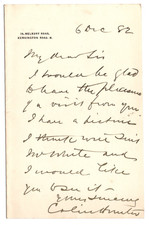 14, MELBURY ROAD,
KENSINGTON ROAD. W.
6 Dec 82
My dear Sir
I would be glad
to have the pleasure
of a visit from you
I have a
I think will
and
I would like
you to see it –
yours sincerely
Colin Hunter